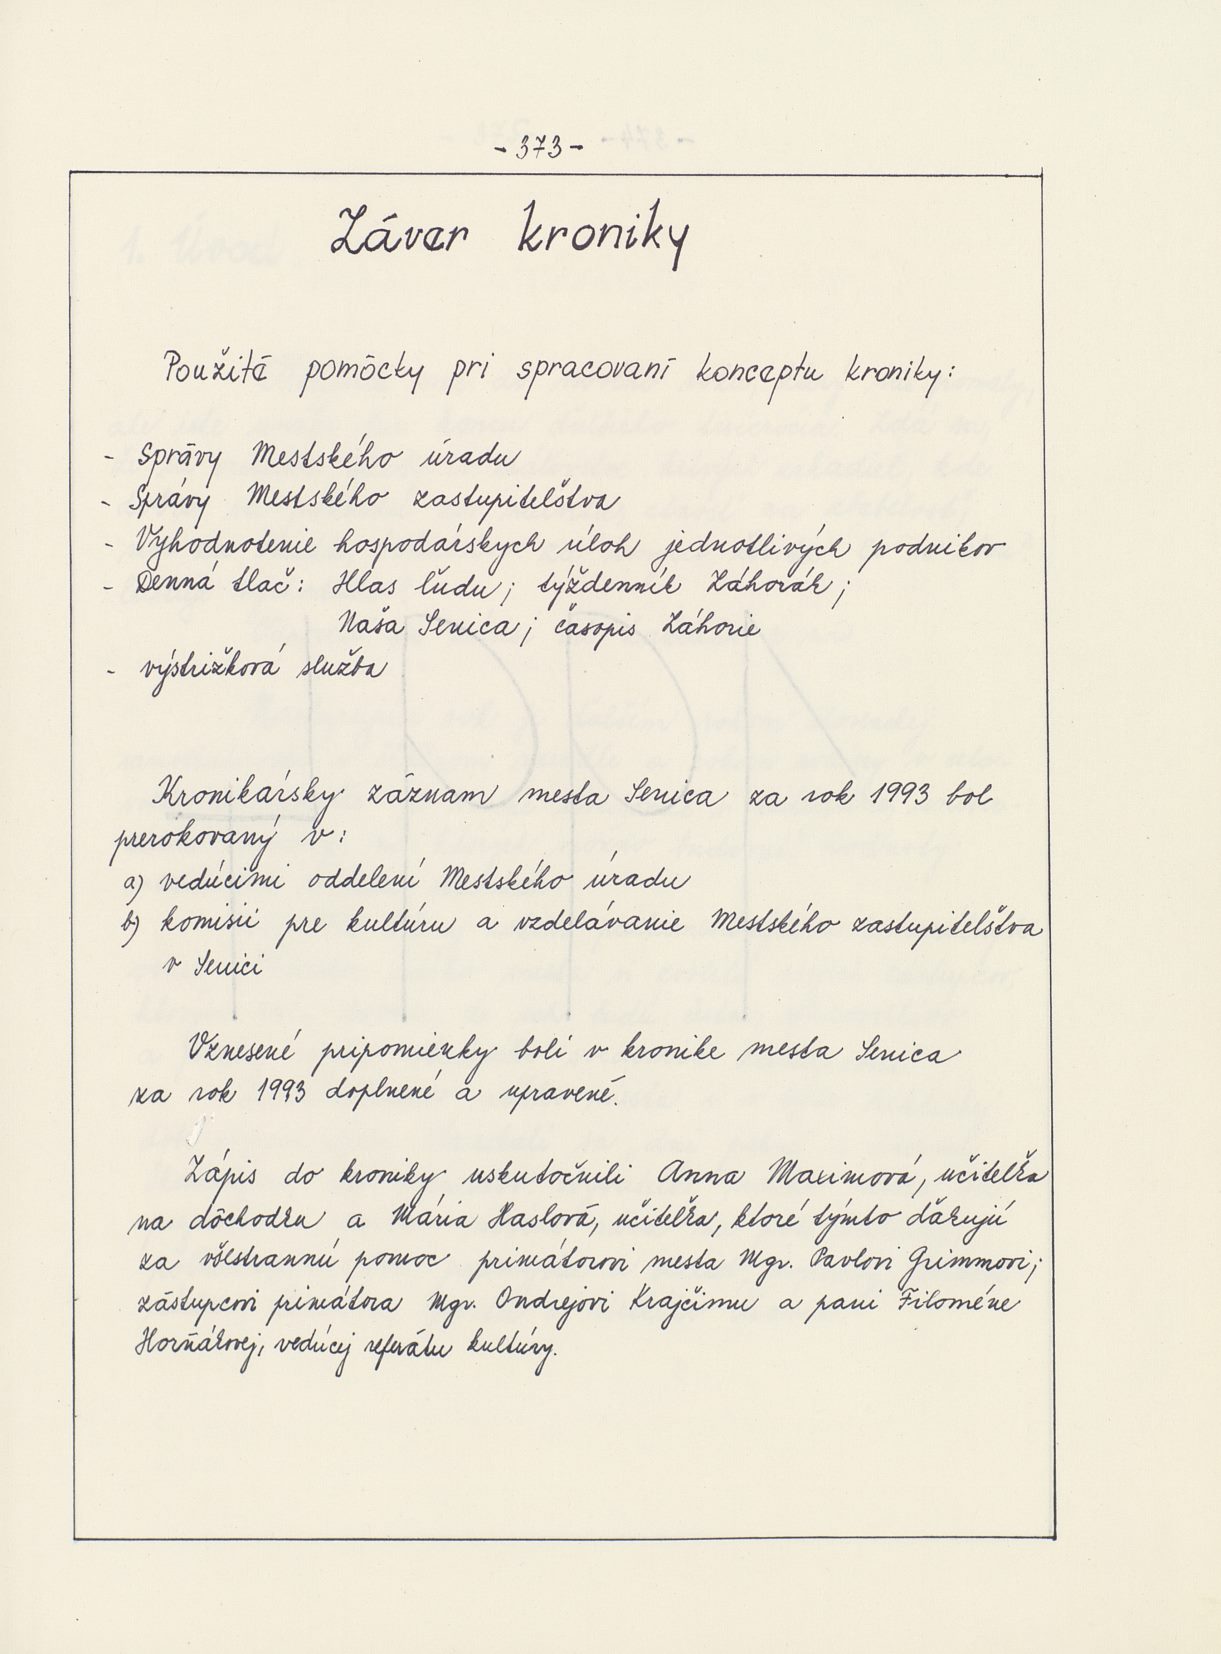 - 373 -
Záver kroniky
Použité pomôcky pri spracovaní konceptu kroniky:
- Správy Mestského úradu
- Správy Mestského zastupiteľstva
- Vyhodnotenie hospodárskych úloh jednotlivých podnikov
- Denná tlač: Hlas ľudu; týždenník Záhorák;
Naša Senica; časopis Záhorie
- výstrižková služba
Kronikársky záznam mesta Senica za rok 1993 bol
prerokovaný v:
a) vedúcimi oddelení Mestského úradu
b) komisii pre kultúru a vzdelávanie Mestského zastupiteľstva
v Senici
Vznesené pripomienky boli v kronike mesta Senica
za rok 1993 doplnené a upravené.
Zápis do kroniky uskutočnili Anna Maximová, učiteľka
na dôchodku a Mária Haslová, učiteľka, ktoré týmto ďakujú
za všestrannú pomoc primátorovi mesta Mgr. Pavlovi Grimmovi;
zástupcovi primátora Mgr. Ondrejovi Krajčimu a pani Filoméne
Horňákovej, vedúcej referátu kultúry.